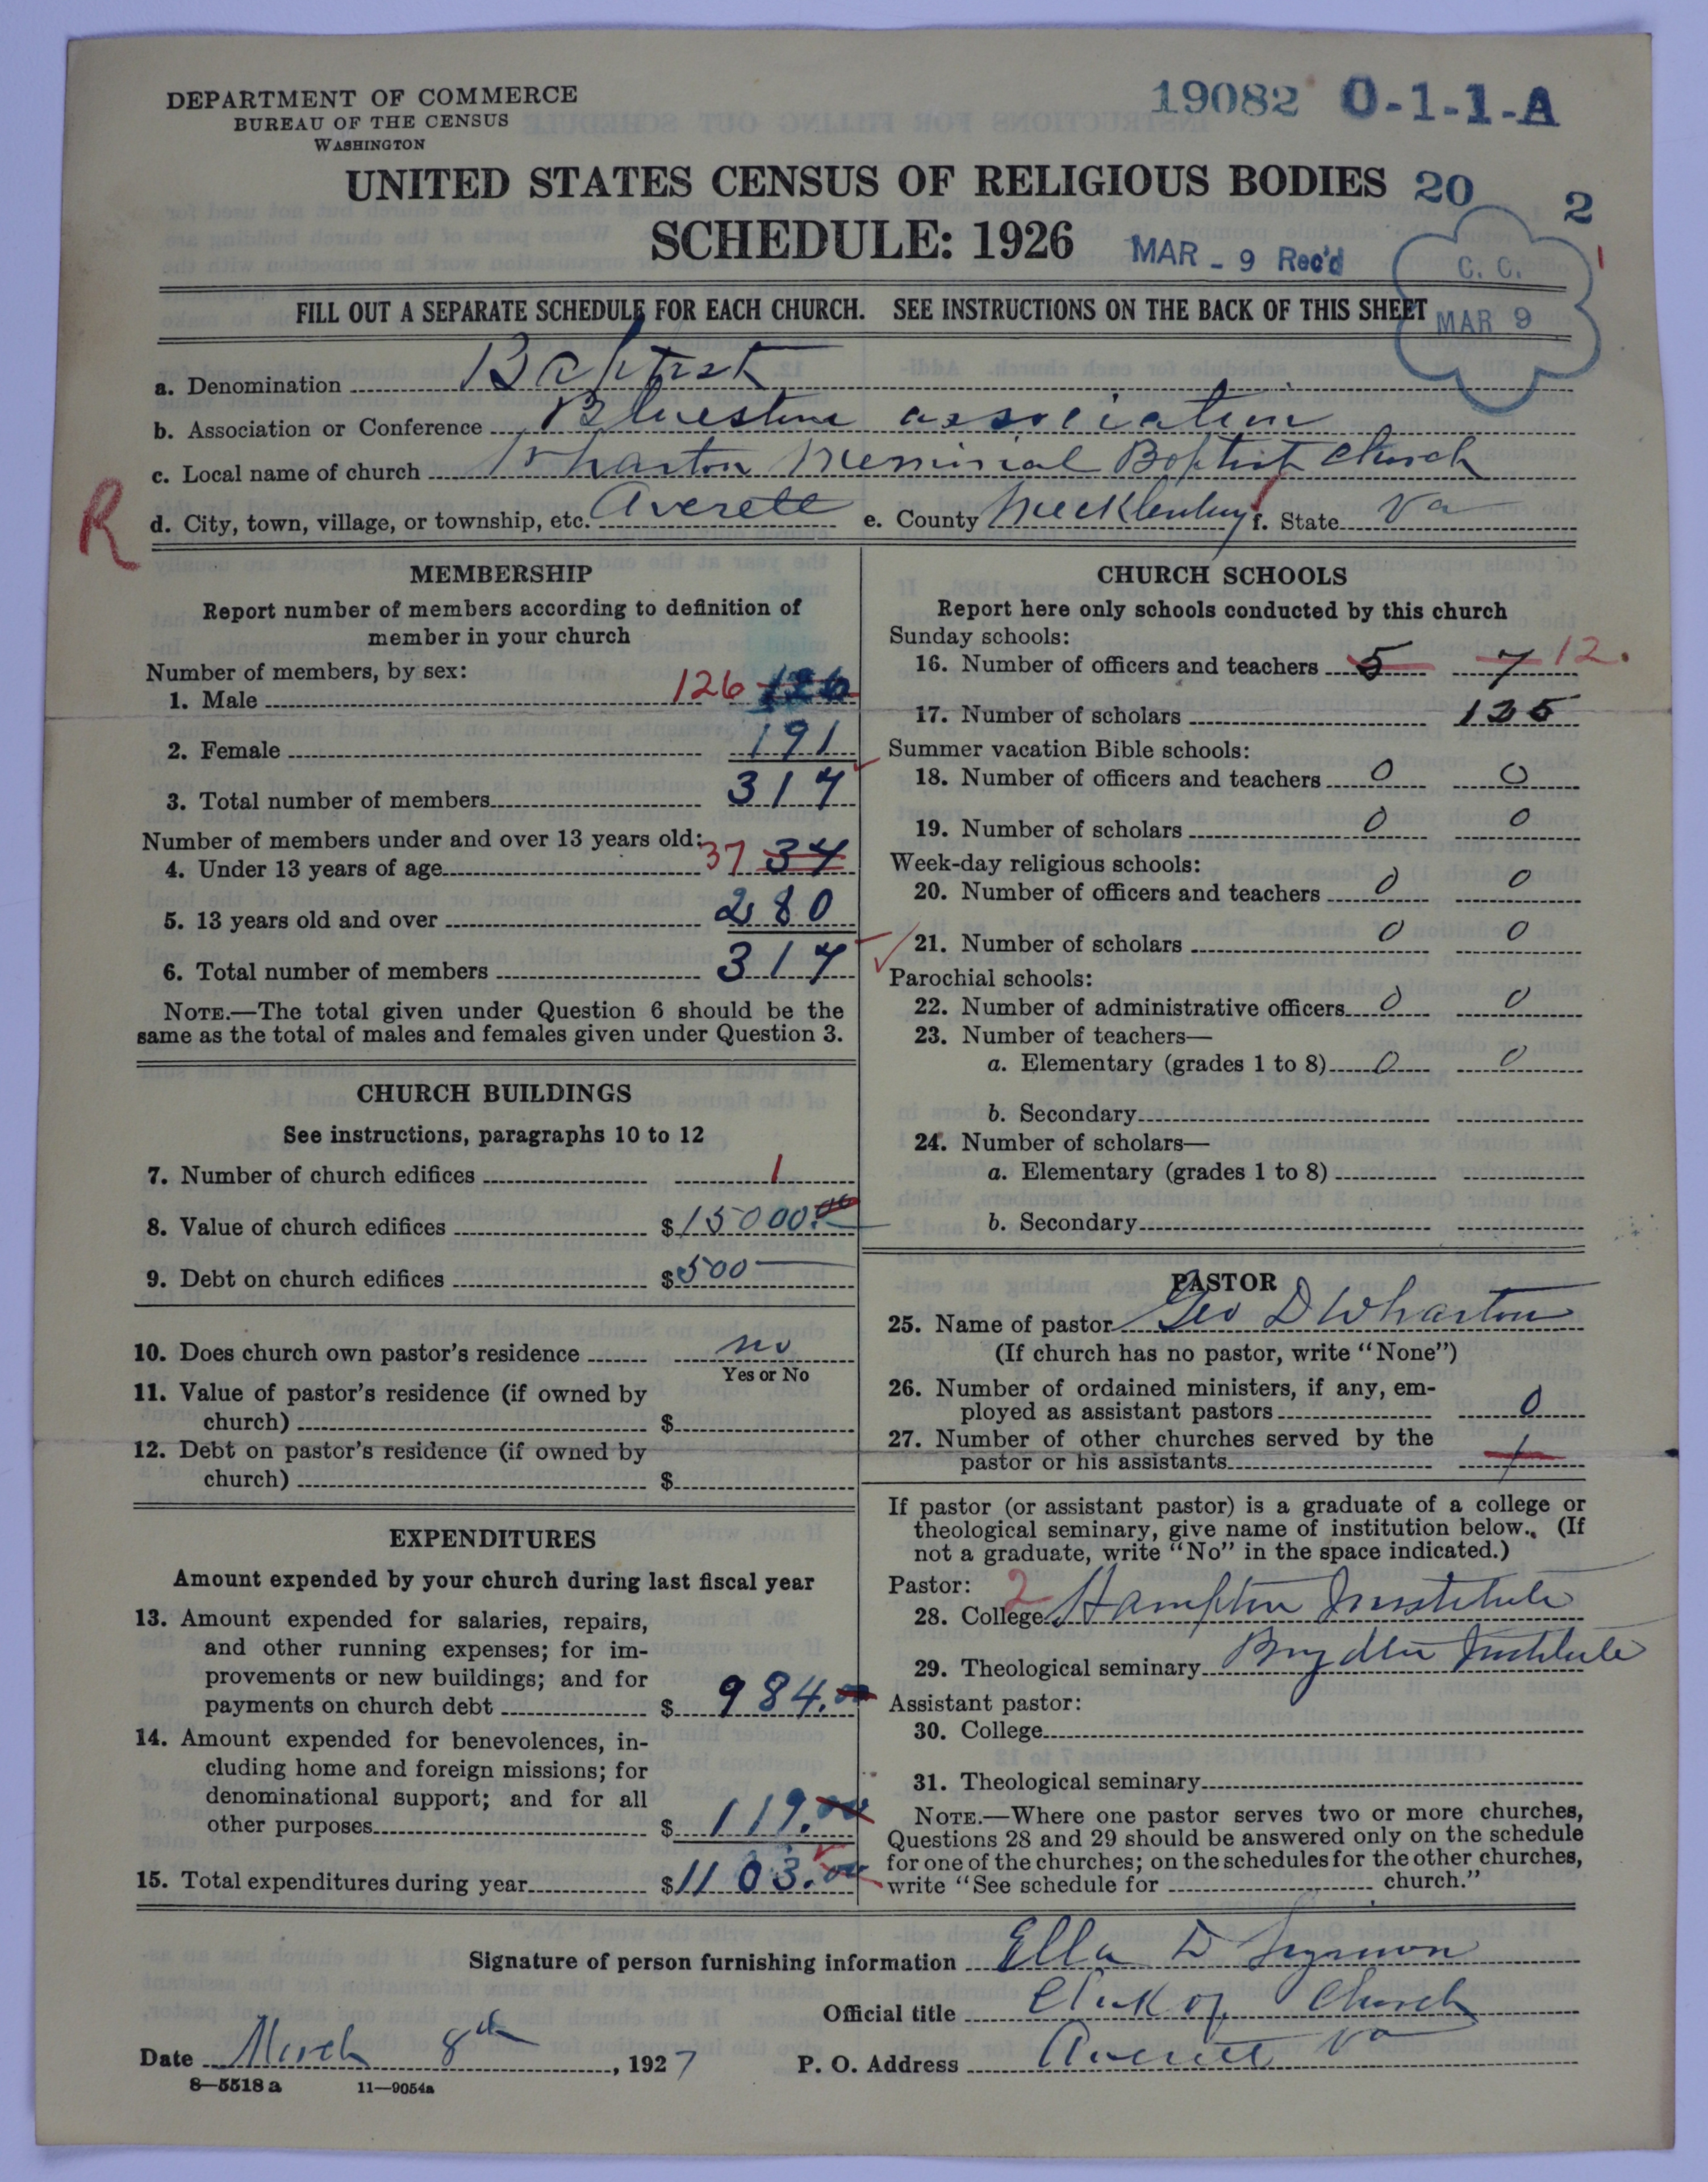 DEPARTMENT OF COMMERCE
BUREAU OF THE CENSUS
WASHINGTON
19082 O-1-1-A
UNITED STATES CENSUS OF RELIGIOUS BODIES 20 2
SCHEDULE: 1926 MAR - 9 Rec'd
C. C.
1
MAR 9
FILL OUT A SEPARATE SCHEDULE FOR EACH CHURCH. SEE INSTRUCTIONS ON THE BACK OF THIS SHEET
a. Denomination Baptist
b. Association or Conference Bluestone association
c. Local name of church Wharton Memorial Baptist Church
R
d. City, town, village, or township, etc. Averett e. County Mecklenburg f. State Va
MEMBERSHIP
Report number of members according to definition of
member in your church
Number of members, by sex:
1. Male 126 126
2. Female 191
3. Total number of members 317
Number of members under and over 13 years old:
4. Under 13 years of age 37 34
5. 13 years old and over 280
6. Total number of members 317
NOTE.—The total given under Question 6 should be the
same as the total of males and females given under Question 3.
CHURCH BUILDINGS
See instructions, paragraphs 10 to 12
7. Number of church edifices 1
8. Value of church edifices $15000.00
9. Debt on church edifices $500
10. Does church own pastor's residence no
Yes or No
11. Value of pastor's residence (if owned by
church) $
12. Debt on pastor's residence (if owned by
church) $
EXPENDITURES
Amount expended by your church during last fiscal year
13. Amount expended for salaries, repairs,
and other running expenses; for im-
provements or new buildings; and for
payments on church debt $ 984.00
14. Amount expended for benevolences, in-
cluding home and foreign missions; for
denominational support; and for all
other purposes $ 119.00
15. Total expenditures during year $1103.00
CHURCH SCHOOLS
Report here only schools conducted by this church
Sunday schools:
16. Number of officers and teachers 5 7 12.
17. Number of scholars 135
Summer vacation Bible schools:
18. Number of officers and teachers 0 0
19. Number of scholars 0 0
Week-day religious schools:
20. Number of officers and teachers 0 0
21. Number of scholars 0 0
Parochial schools:
22. Number of administrative officers 0 0
23. Number of teachers—
a. Elementary (grades 1 to 8) 0 0
b. Secondary
24. Number of scholars—
a. Elementary (grades 1 to 8)
b. Secondary
PASTOR
25. Name of pastor Geo D Wharton
(If church has no pastor, write "None")
26. Number of ordained ministers, if any, em-
ployed as assistant pastors 0
27. Number of other churches served by the
pastor or his assistants 1
If pastor (or assistant pastor) is a graduate of a college or
theological seminary, give name of institution below. (If
not a graduate, write "No" in the space indicated.)
Pastor: 2
28. College Hampton Institute
29. Theological seminary Institute
Assistant pastor:
30. College
31. Theological seminary
NOTE.—Where one pastor serves two or more churches,
Questions 28 and 29 should be answered only on the schedule
for one of the churches; on the schedules for the other churches,
write "See schedule for church."
Signature of person furnishing information Ella D
Official title Clerk of Church
Date March 8th, 1927 P. O. Address Averett Va
8—5518 a 11—9054a